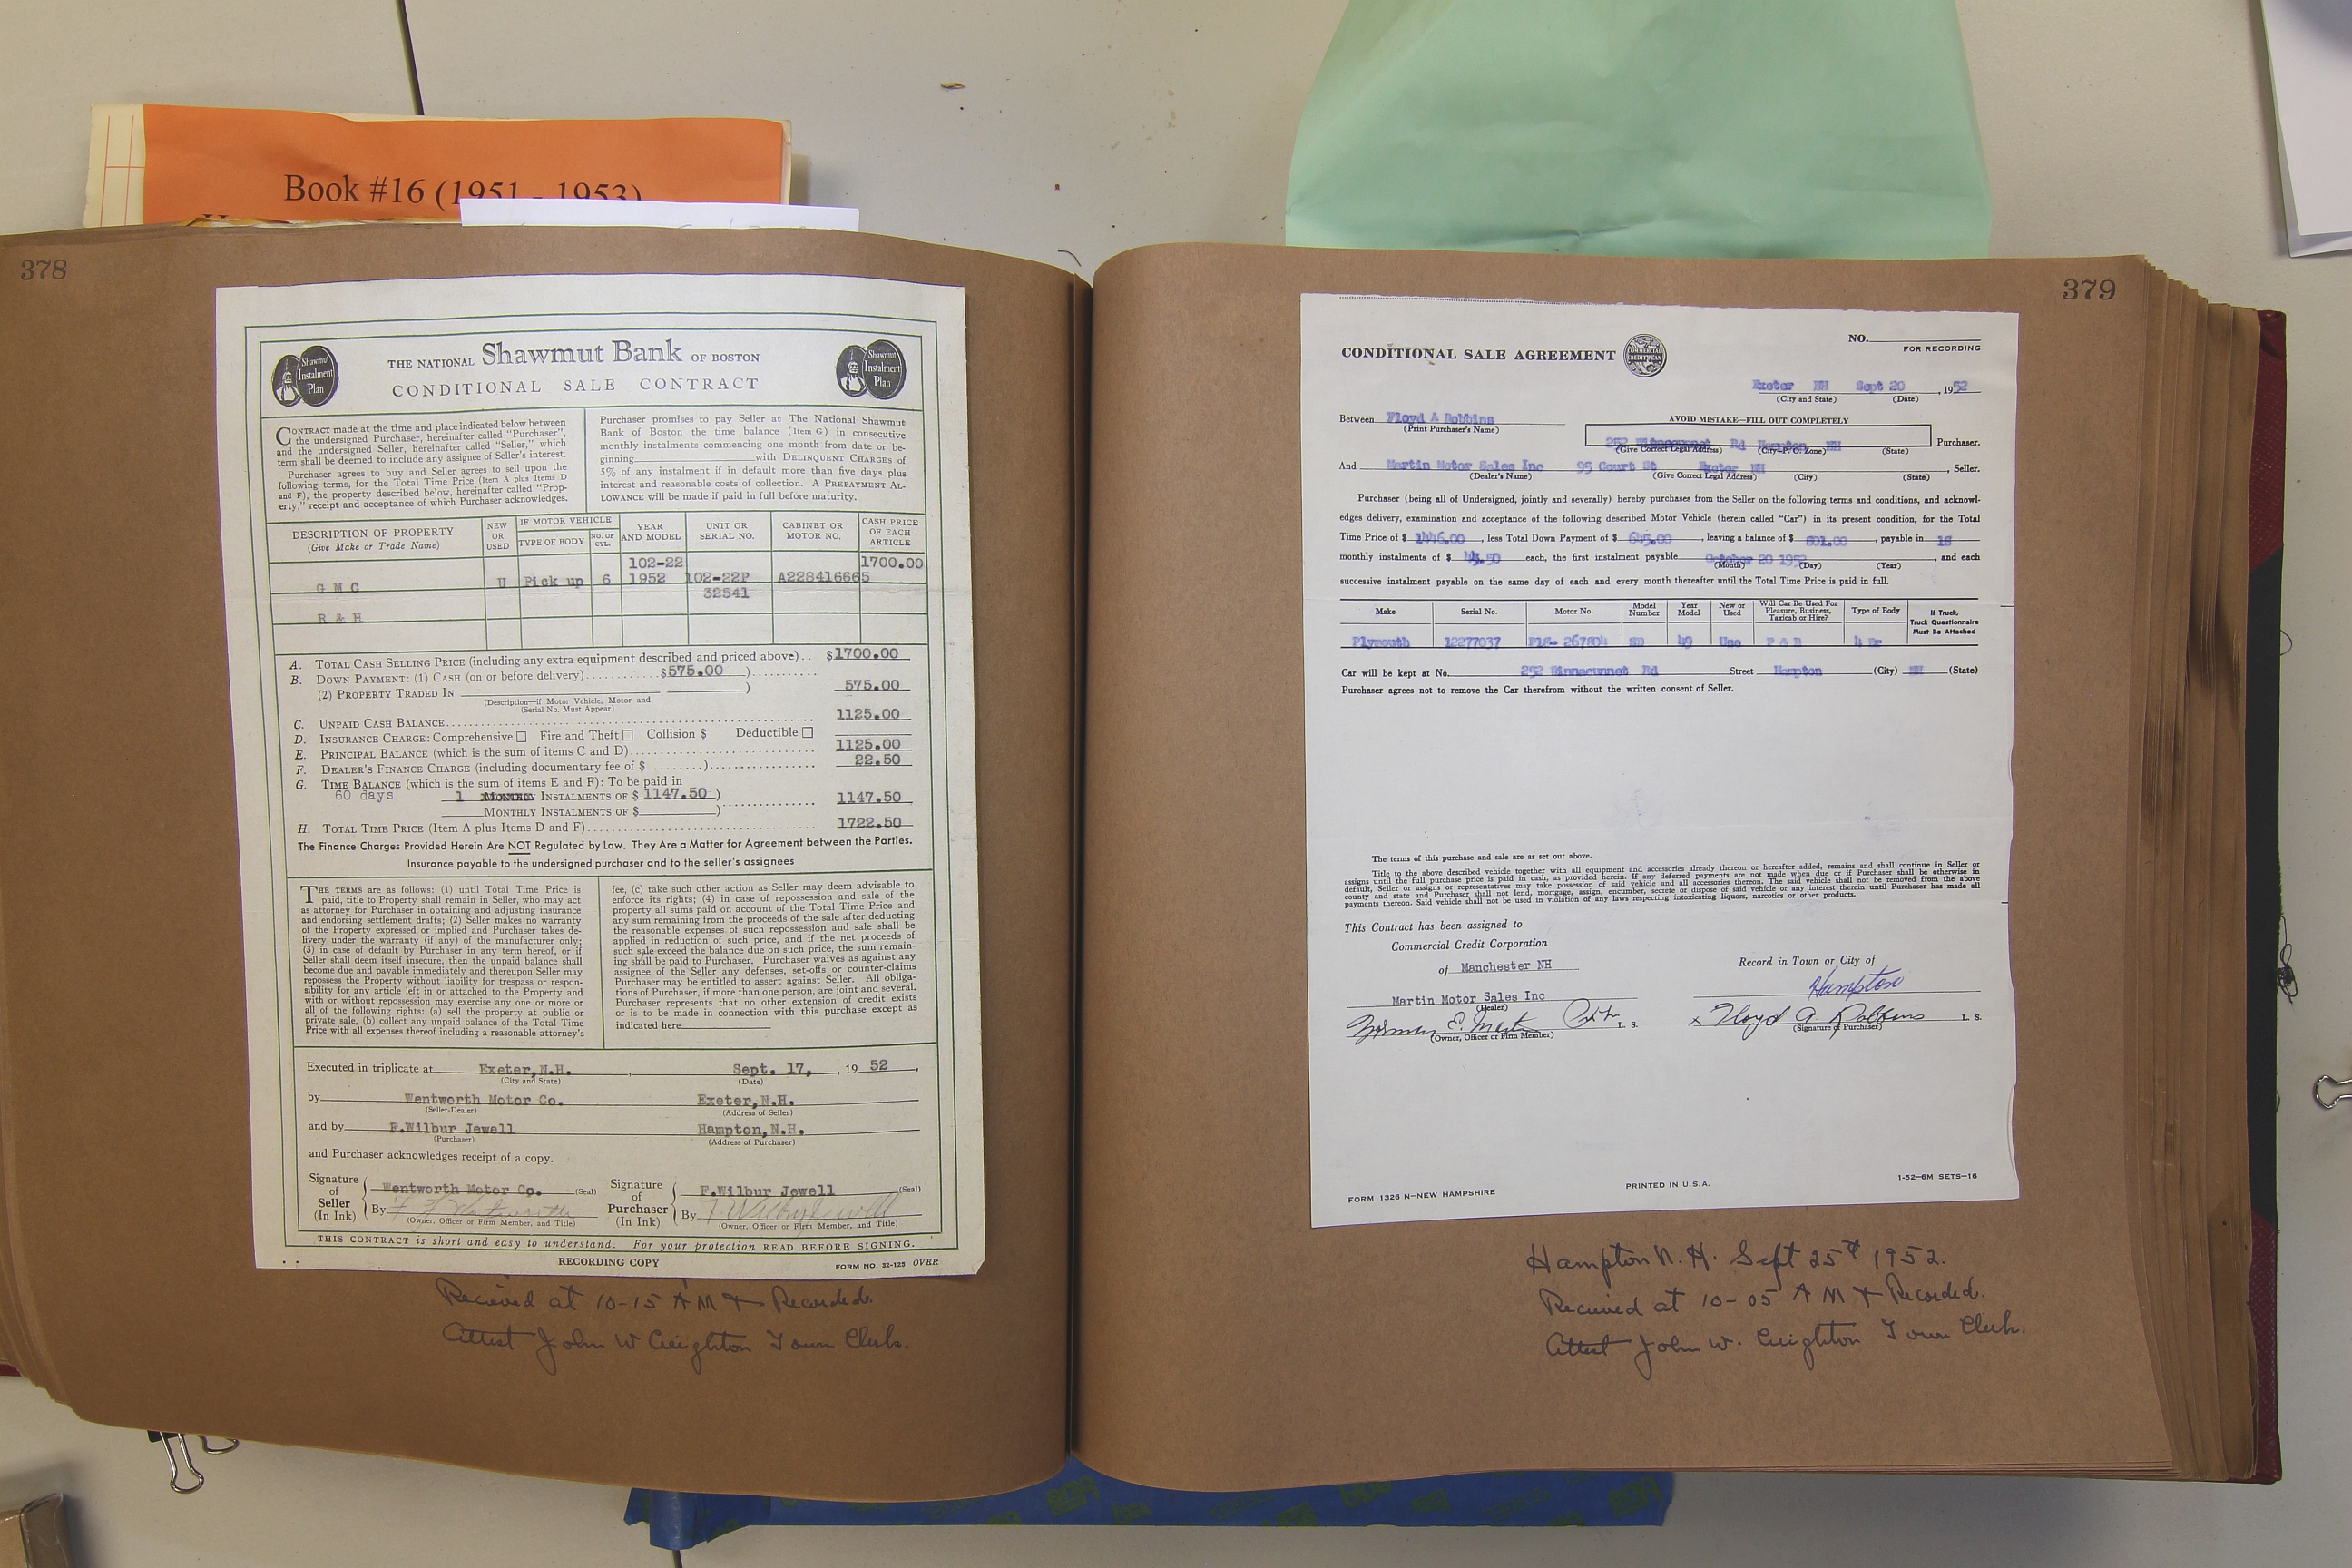 Book #16 (1951 - 1953)
378
Shawmut Instalment Plan
THE NATIONAL Shawmut Bank OF BOSTON
CONDITIONAL SALE CONTRACT
Shawmut Instalment Plan
CONTRACT made at the time and place indicated below between
the undersigned Purchaser, hereinafter called "Purchaser",
and the undersigned Seller, hereinafter called "Seller," which
term shall be deemed to include any assignee of Seller's interest.
Purchaser agrees to buy and Seller agrees to sell upon the
following terms, for the Total Time Price (Item A plus Items D
and F), the property described below, hereinafter called "Prop-
erty," receipt and acceptance of which Purchaser acknowledges.
Purchaser promises to pay Seller at The National Shawmut
Bank of Boston the time balance (Item G) in consecutive
monthly instalments commencing one month from date or be-
ginning with DELINQUENT CHARGES of
5% of any instalment if in default more than five days plus
interest and reasonable costs of collection. A PREPAYMENT AL-
LOWANCE will be made if paid in full before maturity.
DESCRIPTION OF PROPERTY
(Give Make or Trade Name)
NEW OR USED
IF MOTOR VEHICLE
TYPE OF BODY
NO. OF CYL.
YEAR AND MODEL
UNIT OR SERIAL NO.
CABINET OR MOTOR NO.
CASH PRICE OF EACH ARTICLE
102-22 1700.00
G M C U Pick up 6 1952 102-22P A228416665
32541
R & H
A. TOTAL CASH SELLING PRICE (including any extra equipment described and priced above).. $1700.00
B. DOWN PAYMENT: (1) CASH (on or before delivery).......... $575.00 )
(2) PROPERTY TRADED IN ) 575.00
(Description—if Motor Vehicle, Motor and
(Serial No. Must Appear)
C. UNPAID CASH BALANCE 1125.00
D. INSURANCE CHARGE: Comprehensive Fire and Theft Collision $ Deductible
E. PRINCIPAL BALANCE (which is the sum of items C and D) 1125.00
F. DEALER'S FINANCE CHARGE (including documentary fee of $ ........) 22.50
G. TIME BALANCE (which is the sum of items E and F): To be paid in
60 days 1 MONTHLY INSTALMENTS OF $ 1147.50 ) 1147.50
MONTHLY INSTALMENTS OF $ )
H. TOTAL TIME PRICE (Item A plus Items D and F) 1722.50
The Finance Charges Provided Herein Are NOT Regulated by Law. They Are a Matter for Agreement between the Parties.
Insurance payable to the undersigned purchaser and to the seller's assignees
THE TERMS are as follows: (1) until Total Time Price is
paid, title to Property shall remain in Seller, who may act
as attorney for Purchaser in obtaining and adjusting insurance
and endorsing settlement drafts; (2) Seller makes no warranty
of the Property expressed or implied and Purchaser takes de-
livery under the warranty (if any) of the manufacturer only;
(3) in case of default by Purchaser in any term hereof, or if
Seller shall deem itself insecure, then the unpaid balance shall
become due and payable immediately and thereupon Seller may
repossess the Property without liability for trespass or respon-
sibility for any article left in or attached to the Property and
with or without repossession may exercise any one or more or
all of the following rights: (a) sell the property at public or
private sale, (b) collect any unpaid balance of the Total Time
Price with all expenses thereof including a reasonable attorney's
fee, (c) take such other action as Seller may deem advisable to
enforce its rights; (4) in case of repossession and sale of the
property all sums paid on account of the Total Time Price and
any sum remaining from the proceeds of the sale after deducting
the reasonable expenses of such repossession and sale shall be
applied in reduction of such price, and if the net proceeds of
such sale exceed the balance due on such price, the sum remain-
ing shall be paid to Purchaser. Purchaser waives as against any
assignee of the Seller any defenses, set-offs or counter-claims
Purchaser may be entitled to assert against Seller. All obliga-
tions of Purchaser, if more than one person, are joint and several.
Purchaser represents that no other extension of credit exists
or is to be made in connection with this purchase except as
indicated here
Executed in triplicate at Exeter, N.H. , Sept. 17, , 19 52 ,
(City and State) (Date)
by Wentworth Motor Co. Exeter, N.H.
(Seller-Dealer) (Address of Seller)
and by F.Wilbur Jewell Hampton, N.H.
(Purchaser) (Address of Purchaser)
and Purchaser acknowledges receipt of a copy.
Signature of Seller (In Ink) Wentworth Motor Co. (Seal)
By
(Owner, Officer or Firm Member, and Title)
Signature of Purchaser (In Ink) F.Wilbur Jewell (Seal)
By F. Wilbur Jewell
(Owner, Officer or Firm Member, and Title)
THIS CONTRACT is short and easy to understand. For your protection READ BEFORE SIGNING.
RECORDING COPY FORM NO. 32-125 OVER
Recieved at 10-15 AM & Recorded.
Attest John W Creighton Town Clerk.
379
CONDITIONAL SALE AGREEMENT
COMMERCIAL CREDIT PLAN
NO.
FOR RECORDING
Exeter NH Sept 20 , 1952
(City and State) (Date)
Between Floyd A Robbins
(Print Purchaser's Name)
AVOID MISTAKE—FILL OUT COMPLETELY
252 Winnacunnet Rd Hampton NH Purchaser.
(Give Correct Legal Address) (City—P. O. Zone) (State)
And Martin Motor Sales Inc 95 Court St Exeter NH , Seller.
(Dealer's Name) (Give Correct Legal Address) (City) (State)
Purchaser (being all of Undersigned, jointly and severally) hereby purchases from the Seller on the following terms and conditions, and acknowl-
edges delivery, examination and acceptance of the following described Motor Vehicle (herein called "Car") in its present condition, for the Total
Time Price of $ 1446.00 , less Total Down Payment of $ 645.00 , leaving a balance of $ 801.00 , payable in 18
monthly instalments of $ 44.50 each, the first instalment payable October 20 1952 , and each
(Month) (Day) (Year)
successive instalment payable on the same day of each and every month thereafter until the Total Time Price is paid in full.
Make Serial No. Motor No. Model Number Year Model New or Used Will Car Be Used For Pleasure, Business, Taxicab or Hire? Type of Body If Truck, Truck Questionnaire Must Be Attached
Plymouth 12277037 P18- 267804 SD 49 Use P & B 4 Dr
Car will be kept at No. 252 Winnacunnet Rd Street Hampton (City) NH (State)
Purchaser agrees not to remove the Car therefrom without the written consent of Seller.
The terms of this purchase and sale are as set out above.
Title to the above described vehicle together with all equipment and accessories already thereon or hereafter added, remains and shall continue in Seller or
assigns until the full purchase price is paid in cash, as provided herein. If any deferred payments are not made when due or if Purchaser shall be otherwise in
default, Seller or assigns or representatives may take possession of said vehicle and all accessories thereon. The said vehicle shall not be removed from the above
county and state and Purchaser shall not lend, mortgage, assign, encumber, secrete or dispose of said vehicle or any interest therein until Purchaser has made all
payments thereon. Said vehicle shall not be used in violation of any laws respecting intoxicating liquors, narcotics or other products.
This Contract has been assigned to
Commercial Credit Corporation
of Manchester NH
Record in Town or City of
Hampton
Martin Motor Sales Inc
(Dealer)
Norman E. Martin L. S.
(Owner, Officer or Firm Member)
x Floyd A Robbins L. S.
(Signature of Purchaser)
FORM 1326 N—NEW HAMPSHIRE PRINTED IN U.S.A. 1-52—6M SETS—16
Hampton N. H. Sept 25th 1952.
Recieved at 10-05 AM & Recorded.
Attest John W. Creighton Town Clerk.